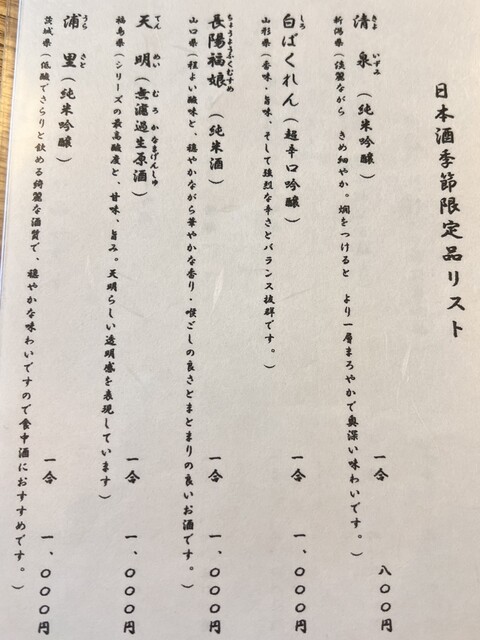 日本酒季節限定品リスト
きよ いずみ
清 泉 (純米吟醸) 一合 八〇〇円
新潟県(淡麗ながら きめ細やか。燗をつけると より一層まろやかで奥深い味わいです。)
しろ
白ばくれん (超辛口吟醸) 一合 一、〇〇〇円
山形県(香味・旨味、そして強烈な辛さとバランス抜群です。)
ちょうようふくむすめ
長陽福娘 (純米酒) 一合 一、〇〇〇円
山口県(程よい酸味と、穏やかながら華やかな香り・喉ごしの良さとまとまりの良いお酒です。)
てん めい むろかなまげんしゅ
天 明 (無濾過生原酒) 一合 一、〇〇〇円
福島県(シリーズの最高酸度と、甘味、旨み。天明らしい透明感を表現しています)
うら さと
浦 里 (純米吟醸) 一合 一、〇〇〇円
茨城県(低酸でさらりと飲める綺麗な酒質で、穏やかな味わいですので食中酒におすすめです。)